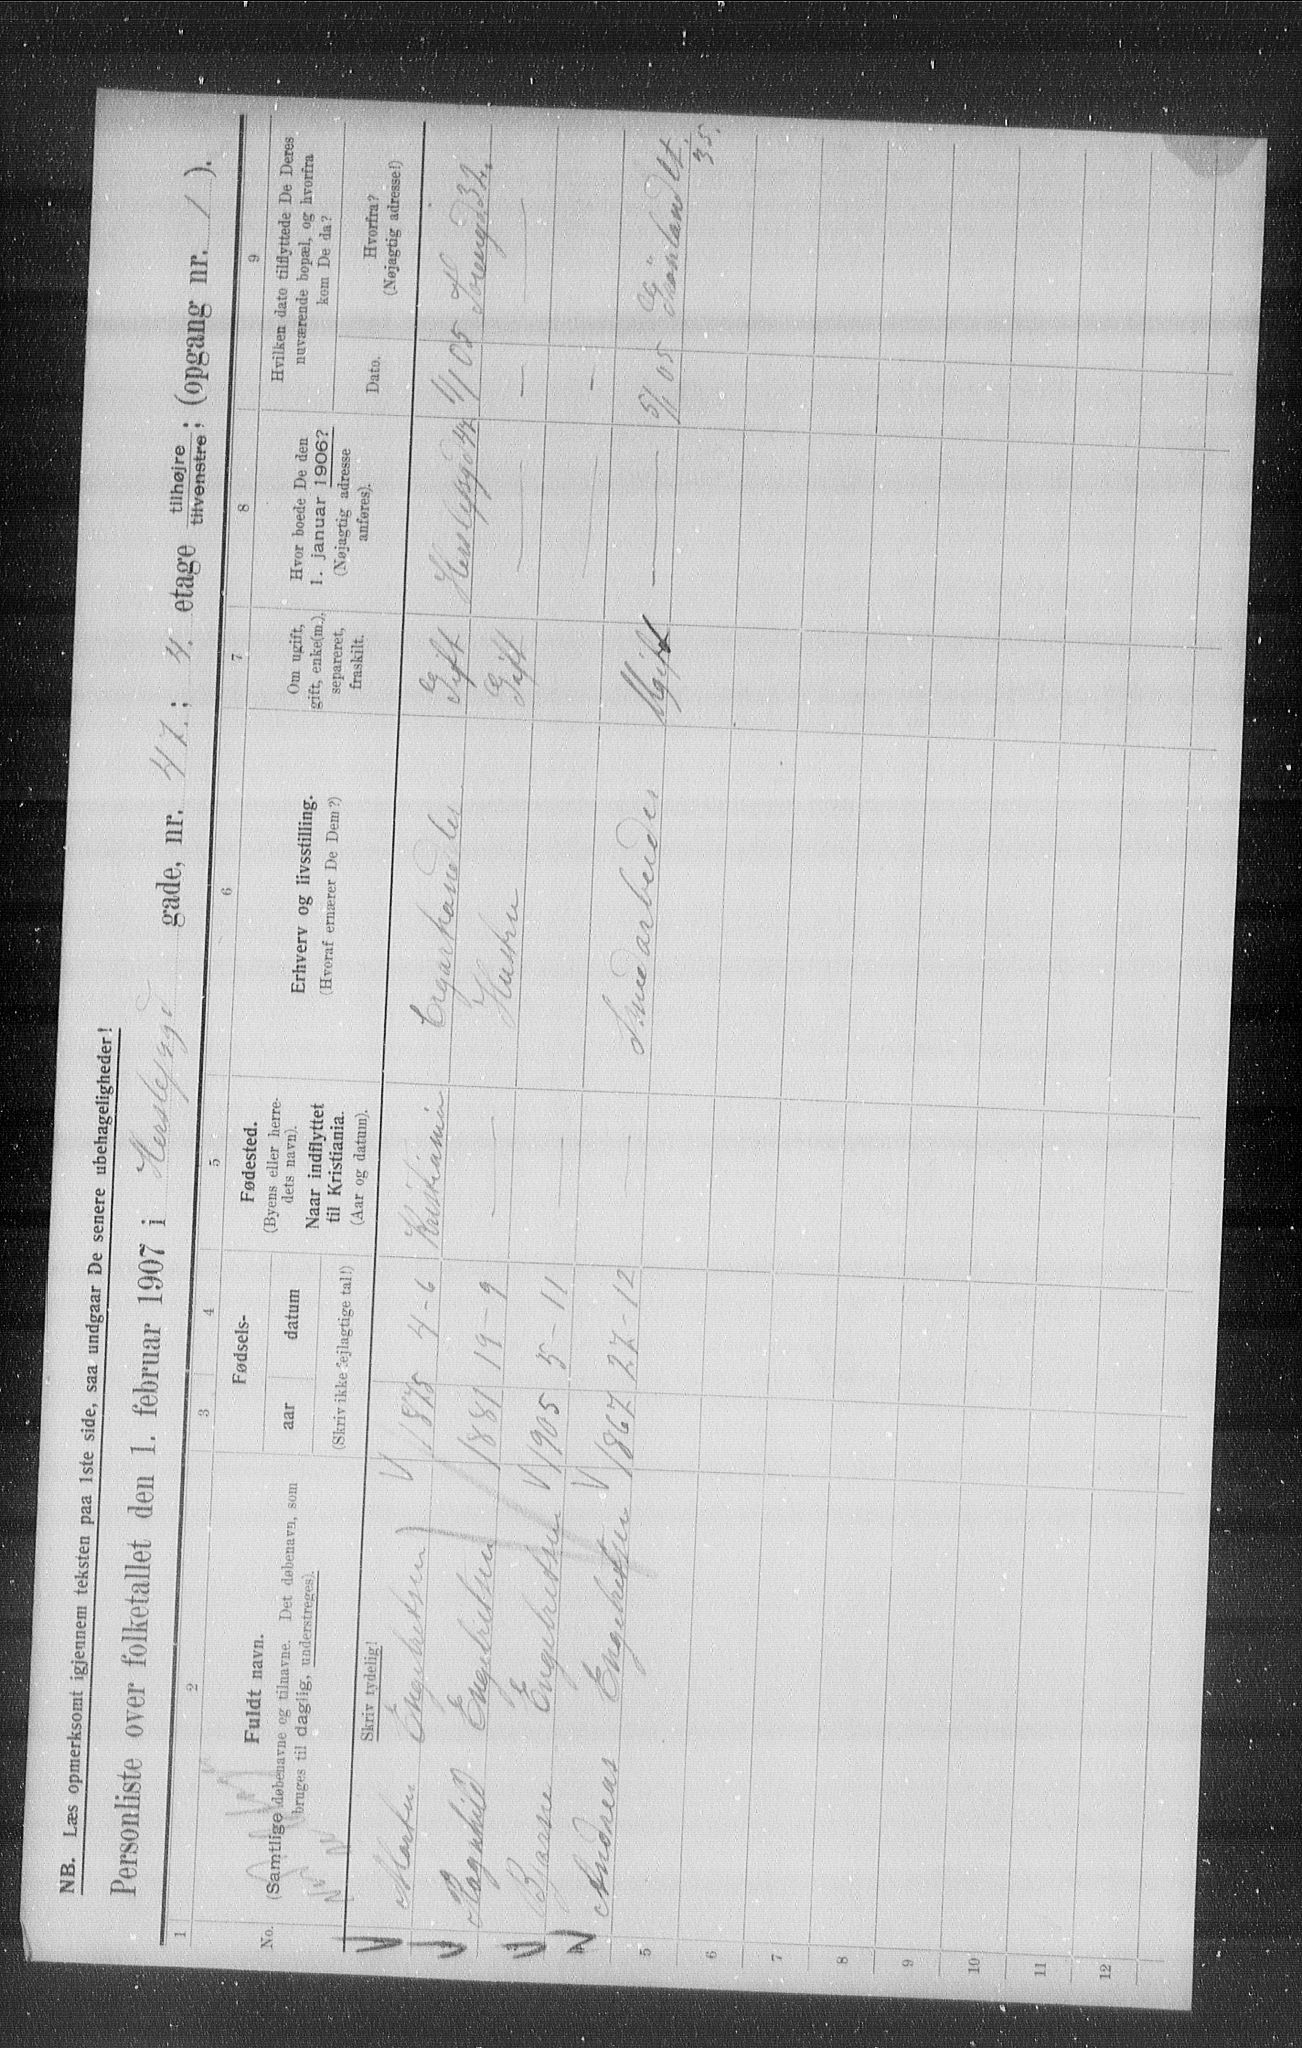 NB. Læs opmerksomt igjennem teksten paa 1ste side, saa undgaar De senere ubehageligheder!
Personliste over folketallet den 1. februar 1907 i Herslebsgd gade, nr. 47.; 4. etage tilhøjre tilvenstre; (opgang nr. 1).
1 2 3 4 5 6 7 8 9
No.
Fuldt navn.
(Samtlige døbenavne og tilnavne. Det døbenavn, som
bruges til daglig, understreges).
Skriv tydelig!
Fødsels-
aar datum
(Skriv ikke fejlagtige tal!)
Fødested.
(Byens eller herre-
dets navn).
Naar indflyttet
til Kristiania.
(Aar og datum).
Erhverv og livsstilling.
(Hvoraf ernærer De Dem?)
Om ugift,
gift, enke(m.),
separeret,
fraskilt.
Hvor boede De den
1. januar 1906?
(Nøjagtig adresse
anføres).
Hvilken dato tilflyttede De Deres
nuværende bopæl, og hvorfra
kom De da?
Dato.
Hvorfra?
(Nøjagtig adresse!)
Marten Engebretsen 1875 4-6 Kristiania Cigarhandler Gift Herslebsgd 47 1/1 05
Ragnhild Engebretsen 1881 19-9 — Hustru Gift — — —
Bjarne Engebretsen 1905 5-11 — — —
Andreas Engebretsen 1867 27-12 — Smedarbeider Ugift — 5/1 05 Grønland 35.
5
6
7
8
9
10
11
12